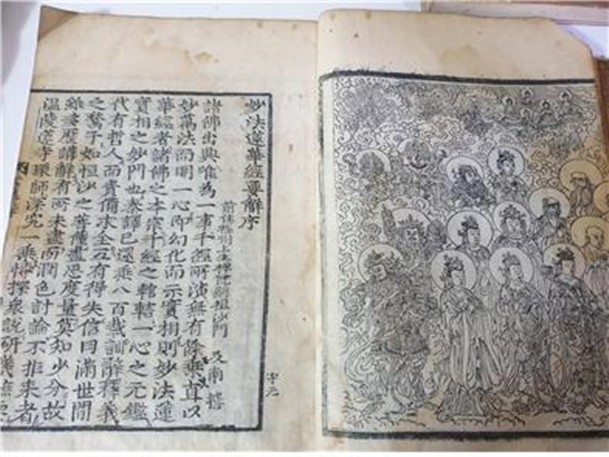 妙法蓮華經要解序
前住福州上生禪院嗣祖沙門 及南 撰
諸佛出興唯為一事千經所演無有餘乘直以
妙萬法而明一心即幻化而示實相則妙法蓮
華經者諸佛之本宗千經之轄一心之玄鑑
實相之妙門也秦譯已還乘八百載訓辭釋義
代有哲人而責備求全互有得失信目滿世間
之鶖子如恒沙之菩薩盡思度量莫知少分故
雖屢歷講解有所未盡而潤色討論不推來者
溫陵蓮寺環師深究一乘博採衆說研幾